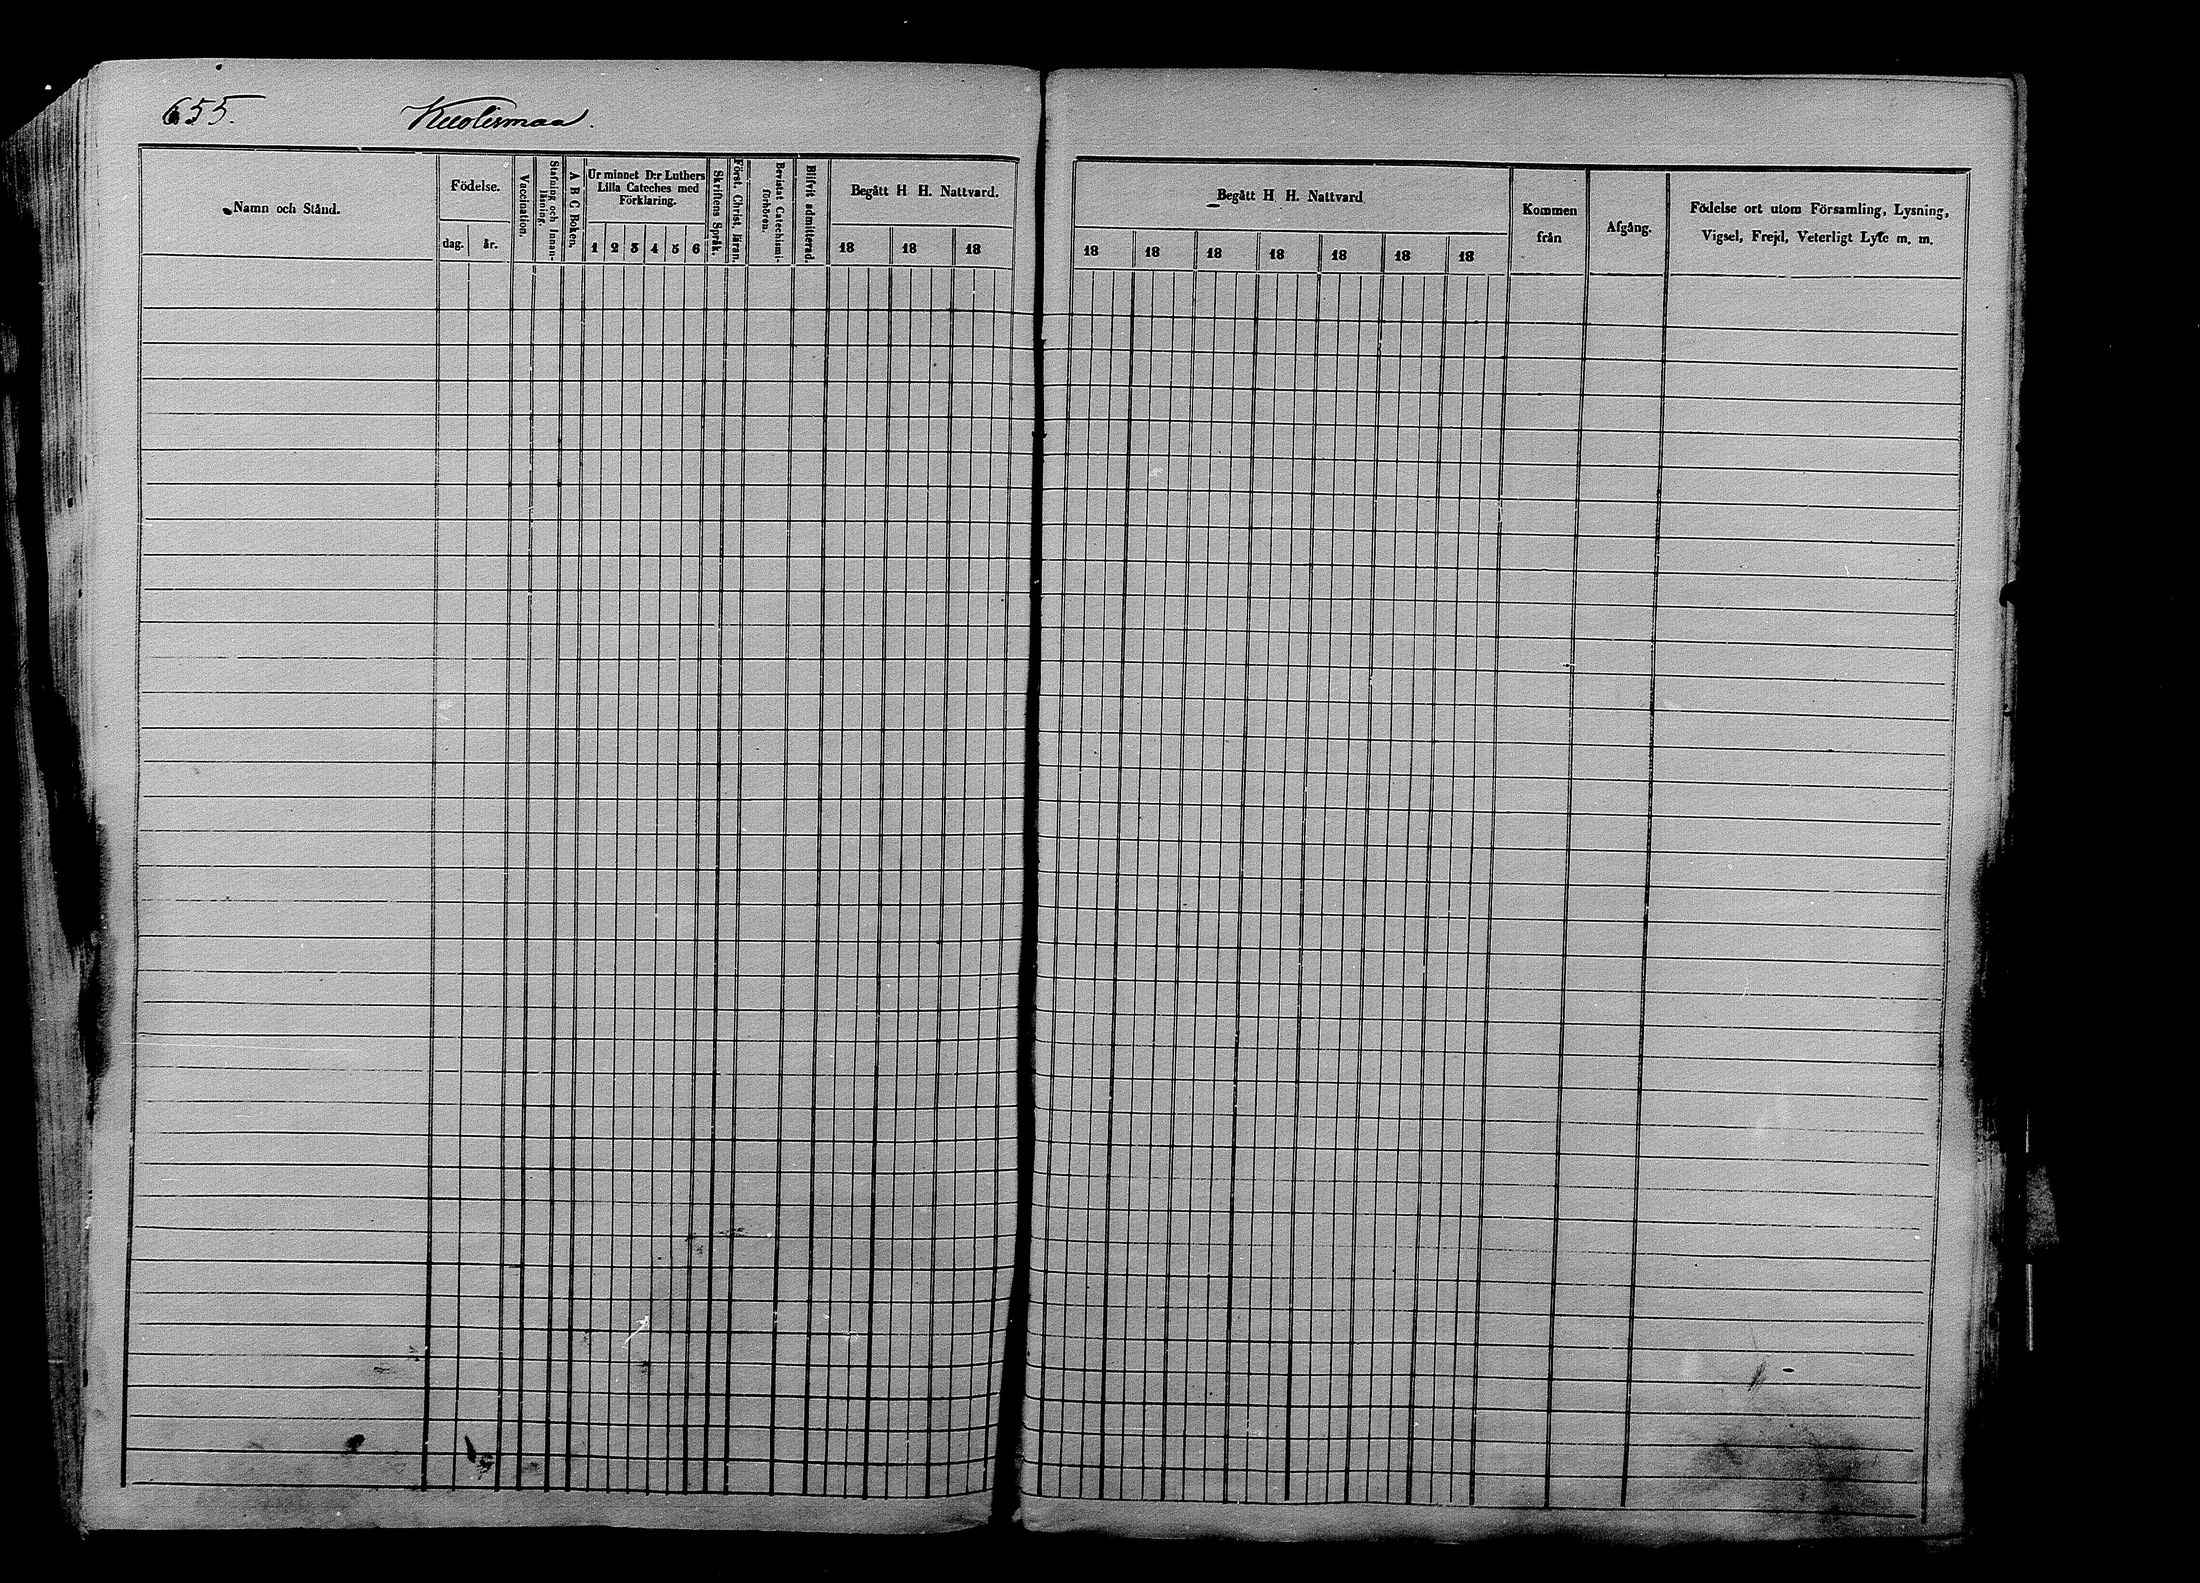 655. Kuolismaa.
Namn och Stånd.
Födelse.
dag. år.
Vaccination.
Stafning och Innan-
läsning.
A B C Boken.
Ur minnet D:r Luthers
Lilla Cateches med
Förklaring.
1 2 3 4 5 6
Skriftens Språk.
Först. Christ. läran.
Bevistat Catechismi-
förhören.
Blifvit admitterad.
Begått H H. Nattvard.
18 18 18
Begått H H. Nattvard
18 18 18 18 18 18 18
Kommen
från
Afgång.
Födelse ort utom Församling, Lysning,
Vigsel, Frejd, Veterligt Lyte m. m.